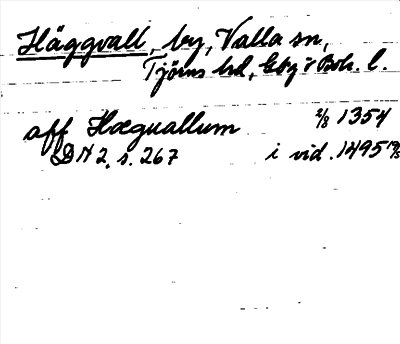 Häggvall, by, Valla sn,
Tjörns hd, Gbg o Boh. l.
aff Hæguallum 2/8 1354
DN 2, s. 267 i vid. 1495